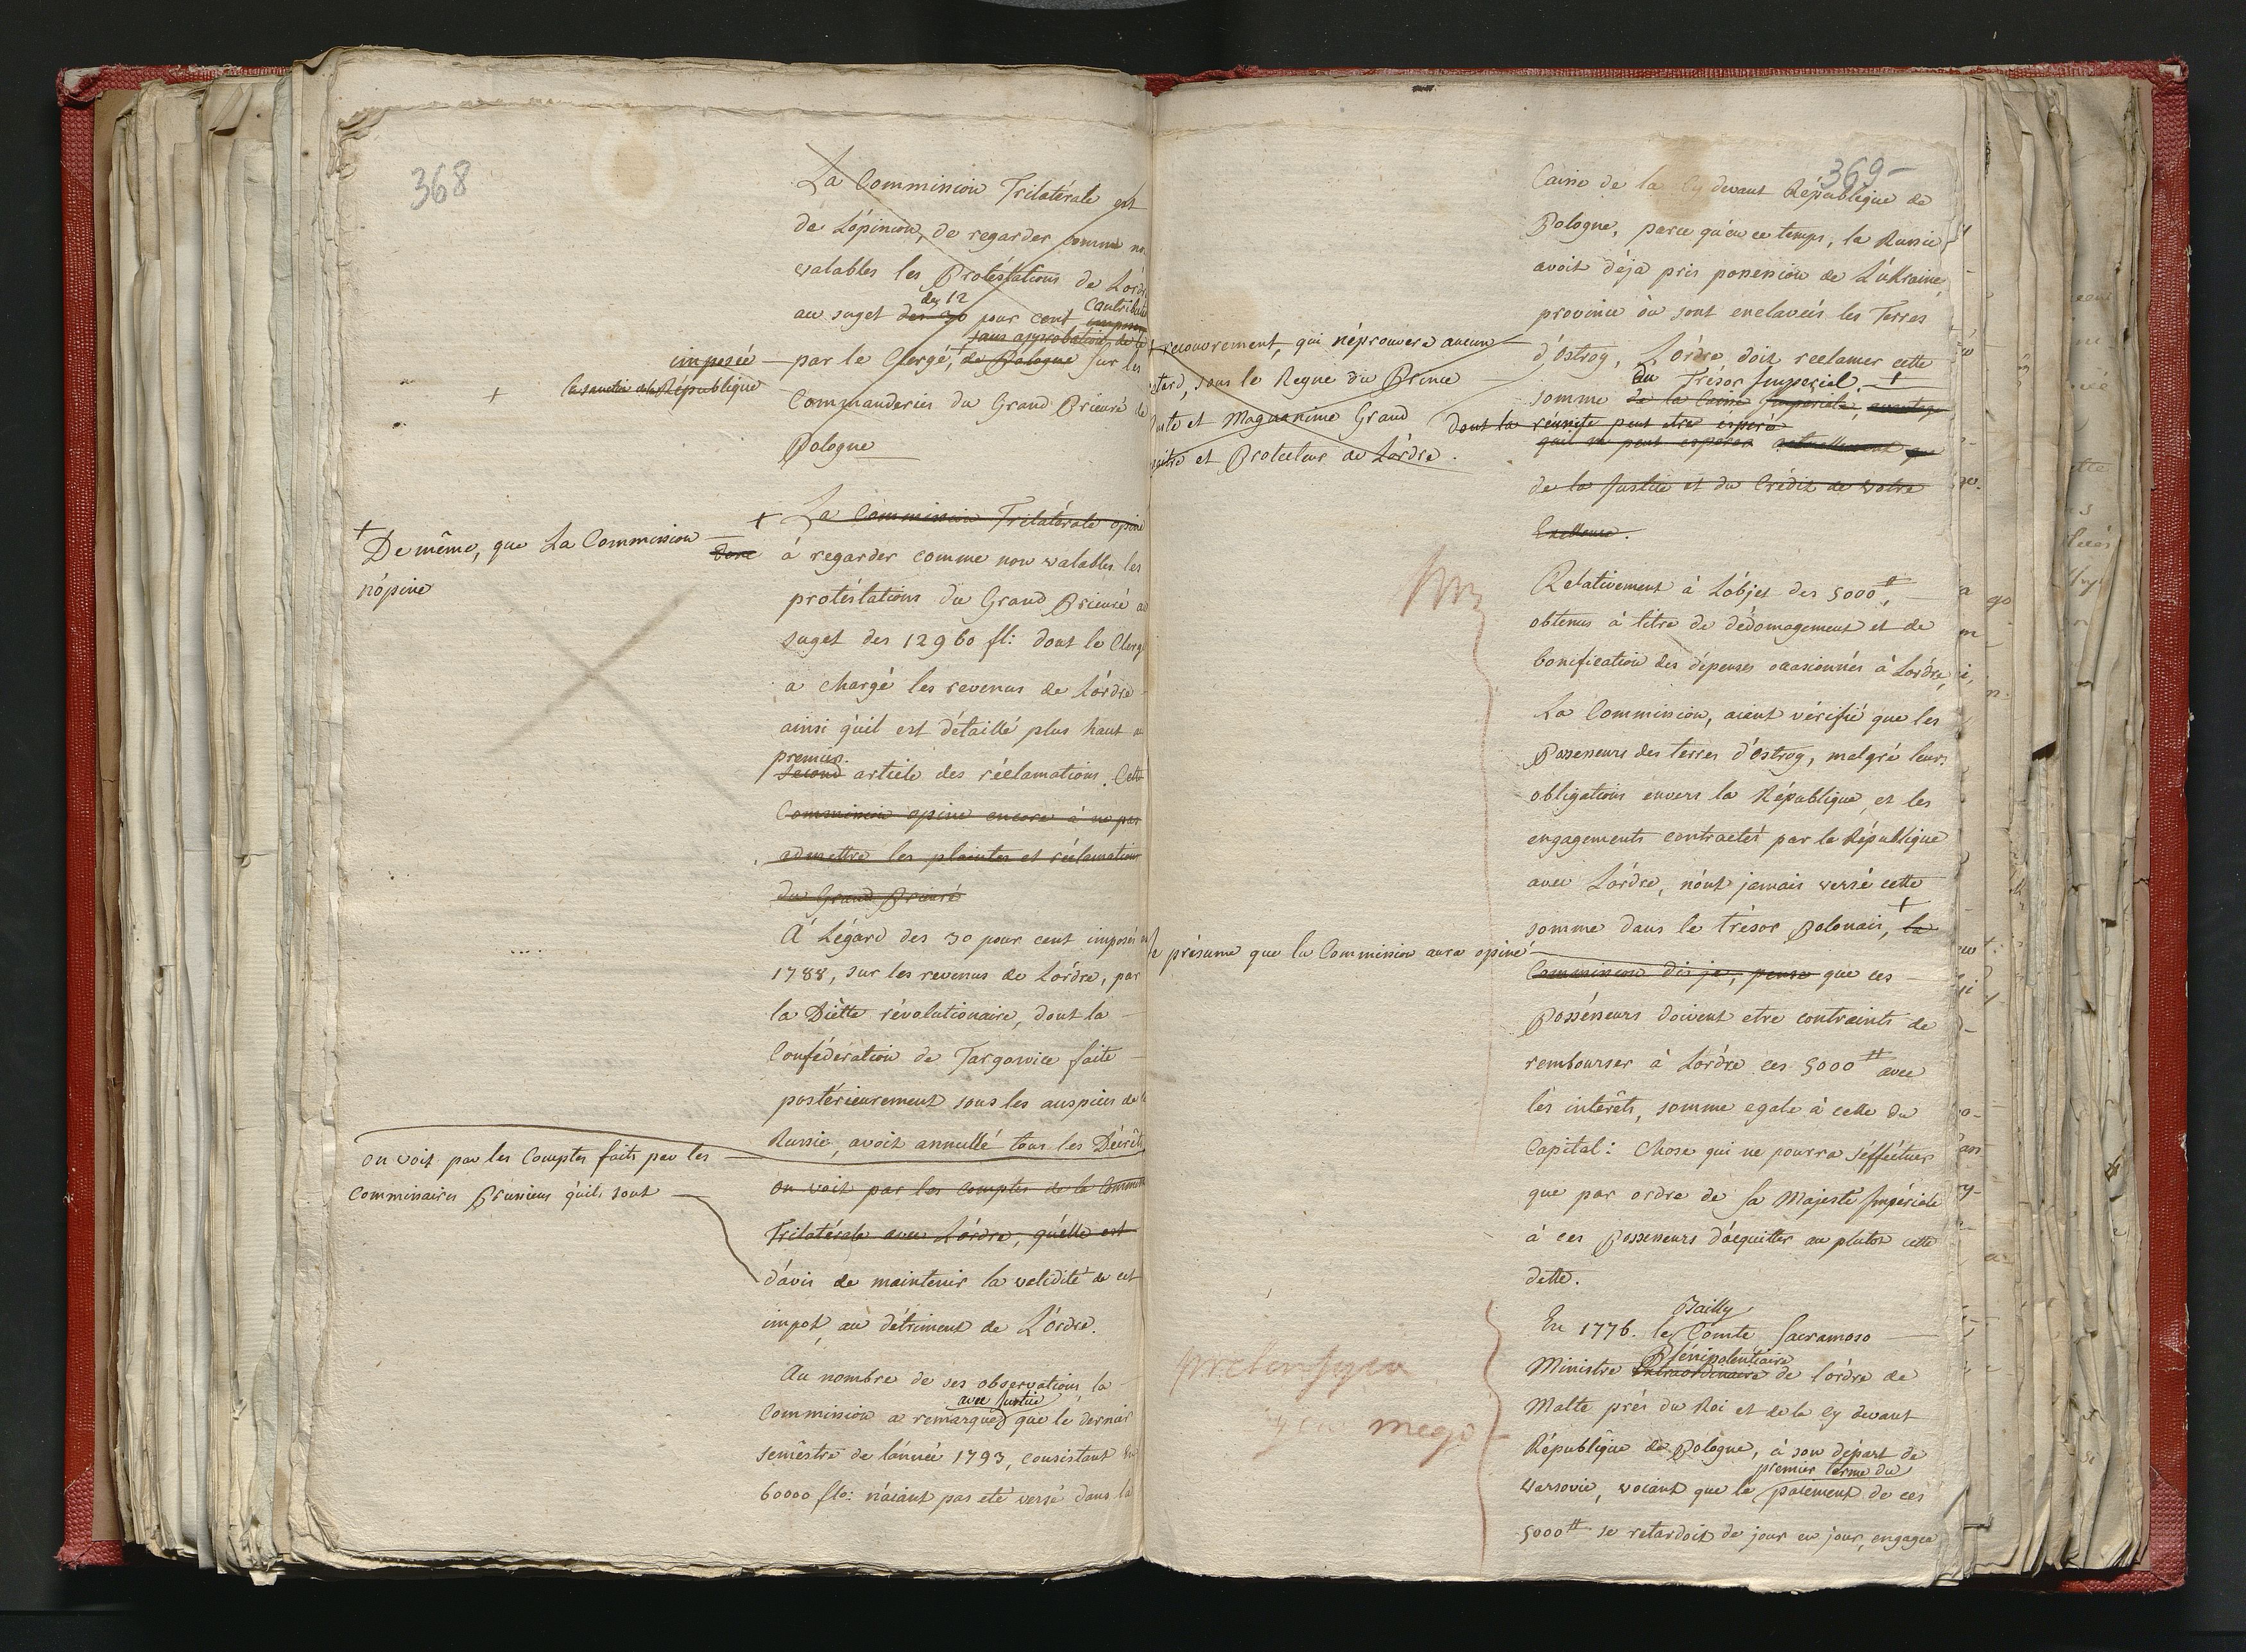 368
La Commission Trilatérale est
de L'ópinion, de regarder comme no
valables les Protéstations de L'ord
des 12 Contribu
au suget des 30 pour cent impose
sans approbation de la
imposée — par le Clergé, + de Pologne sur les
+ la sanction de la République
Commanderies du Grand Prieuré de
Pologne
+ La Commission Trilatérale opine
+ De même, que La Commission —
n'ópine
à regarder comme non valables les
protéstations du Grand Prieuré au
suget des 12960 fl: dont le Clergé
a chargé les revenus de L'órdre
ainsi qu'il est détaillé plus haut
premier.
second article des réclamations. Cette
Commission opine encore à ne pas
admettre les plaintes et réclamations
du Grand Prieuré
A L'égard des 30 pour cent imposés
1788, sur les revenus de L'ordre, par
la Diétte révolutionaire, dont la
Conféderation de Targowice faite
postérieurement sous les auspices de la
Russie, avoit annullé tous les Décréts
on voit par les Comptes faits par les
Commissaires Prussiens qu'ils sont
on voit par les comptes de la Commis
Trilatérale avec L'órdre, qu'elle est
d'avis de maintenir la validité de cet
impot, au détriment de L'órdre.
Au nombre de ses observations, la
avec Justice
Commission a remarqué que le dernier
semèstre de l'année 1793, consistant en
60000 flo: n'aiant pas eté versé dans la
369
Caisse de la Cy devant République de
Pologne, parce qu'en ce temps, la Russie
avoit déja pris possession de L'úkraine,
province où sont enclavées les Terres
+ recouvrement, qui n'éprouvera aucun —
d'Ostrog, L'órdre doit reclamer cette
retard, sous le Regne du Prince
du Trésor Imperial. +
somme de la Caisse Imperiale, avantage
uste et Magnanime Grand
dont la réussite peut etre ésperé
qu'il ne peut esperer actuellement que
aitre et Protecteur de L'órdre.
de la Justice et du Crédit de Votre
Exellence.
Relativement à L'óbjet des 5000 #,
obtenus à titre de dédomagement et de
bonification des dépenses occasionnés à L'ordre,
La Commission, aient vérifié que les
Possesseurs des terres d'Ostrog, malgré leurs
obligations envers la République, et les
engagements contractés par la République
avec L'órdre, n'ont jamais versé cette
somme dans le trésor Polonais, + la
Je présume que la Commission aura opiné
Commission dis je, pense que ces
Possésseurs doivent etre contraints de
rembourser à L'ordre ces 5000 # avec
les intérêts, somme egale à cette du
Capital: Chose qui ne pourra s'éfféctuer
que par ordre de Sa Majesté Impériale
à ces Possesseurs d'acquitter au plutot cette
dette.
Bailly
En 1776. le Comte Sacramoso —
Plénipotentiaire
Ministre Extraordinaire de l'ordre de
Malte prés du Roi et de la Cy devant
République de Pologne, à son départ de
premier terme du
Varsovie, voiant que le paiement de ces
5000 # se retardoit de jour en jour, engagea